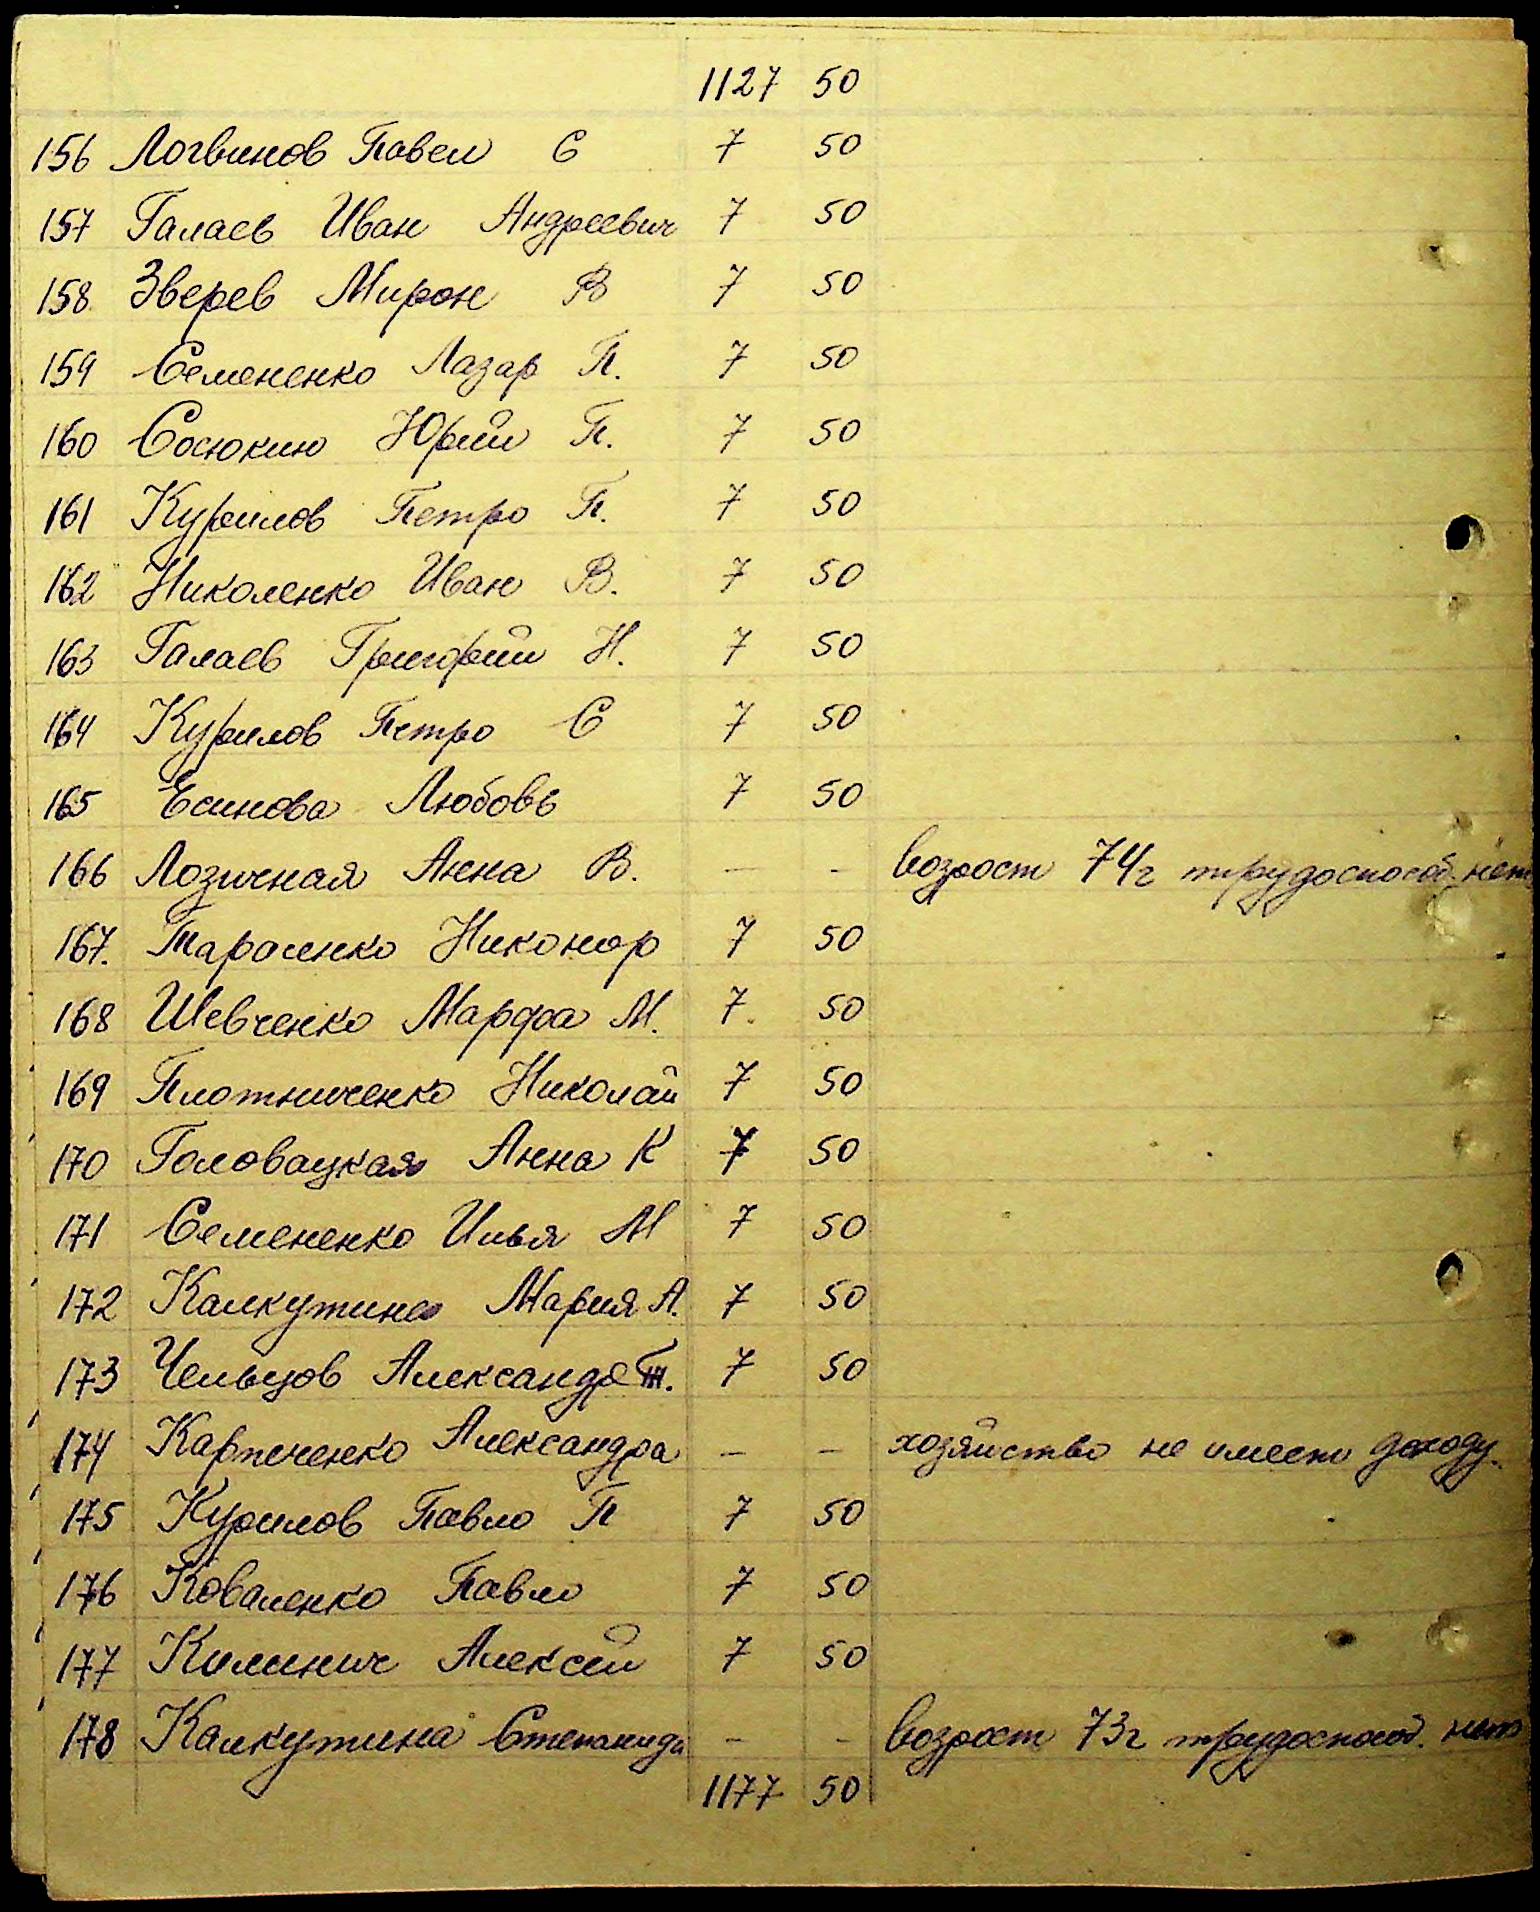 1127 50
156 Логвинов Павел С 7 50
157 Галаев Иван Андреевич 7 50
158 Зверев Мирон В 7 50
159 Семененко Лазар П. 7 50
160 Сосюкин Юрий П. 7 50
161 Курилов Петро П. 7 50
162 Николенко Иван В. 7 50
163 Галаев Григорий Н. 7 50
164 Курилов Петро С 7 50
165 Есинова Любовь 7 50
166 Лозичная Анна В. - - возраст 74г трудоспособ. нет
167. Тарасенко Никонор 7 50
168 Шевченко Марфа М. 7 50
169 Плотниченко Николай 7 50
170 Головацкая Анна К 7 50
171 Семененко Илья М 7 50
172 Калкутина Мария А. 7 50
173 Чельцов Александр 7 50
174 Карпеченко Александра - - хозяйство не имеет доходу.
175 Курилов Павло П 7 50
176 Коваленко Павло 7 50
177 Килинич Алексей 7 50
178 Калкутина Степанида - - возраст 73г трудоспособ. нет
1177 50